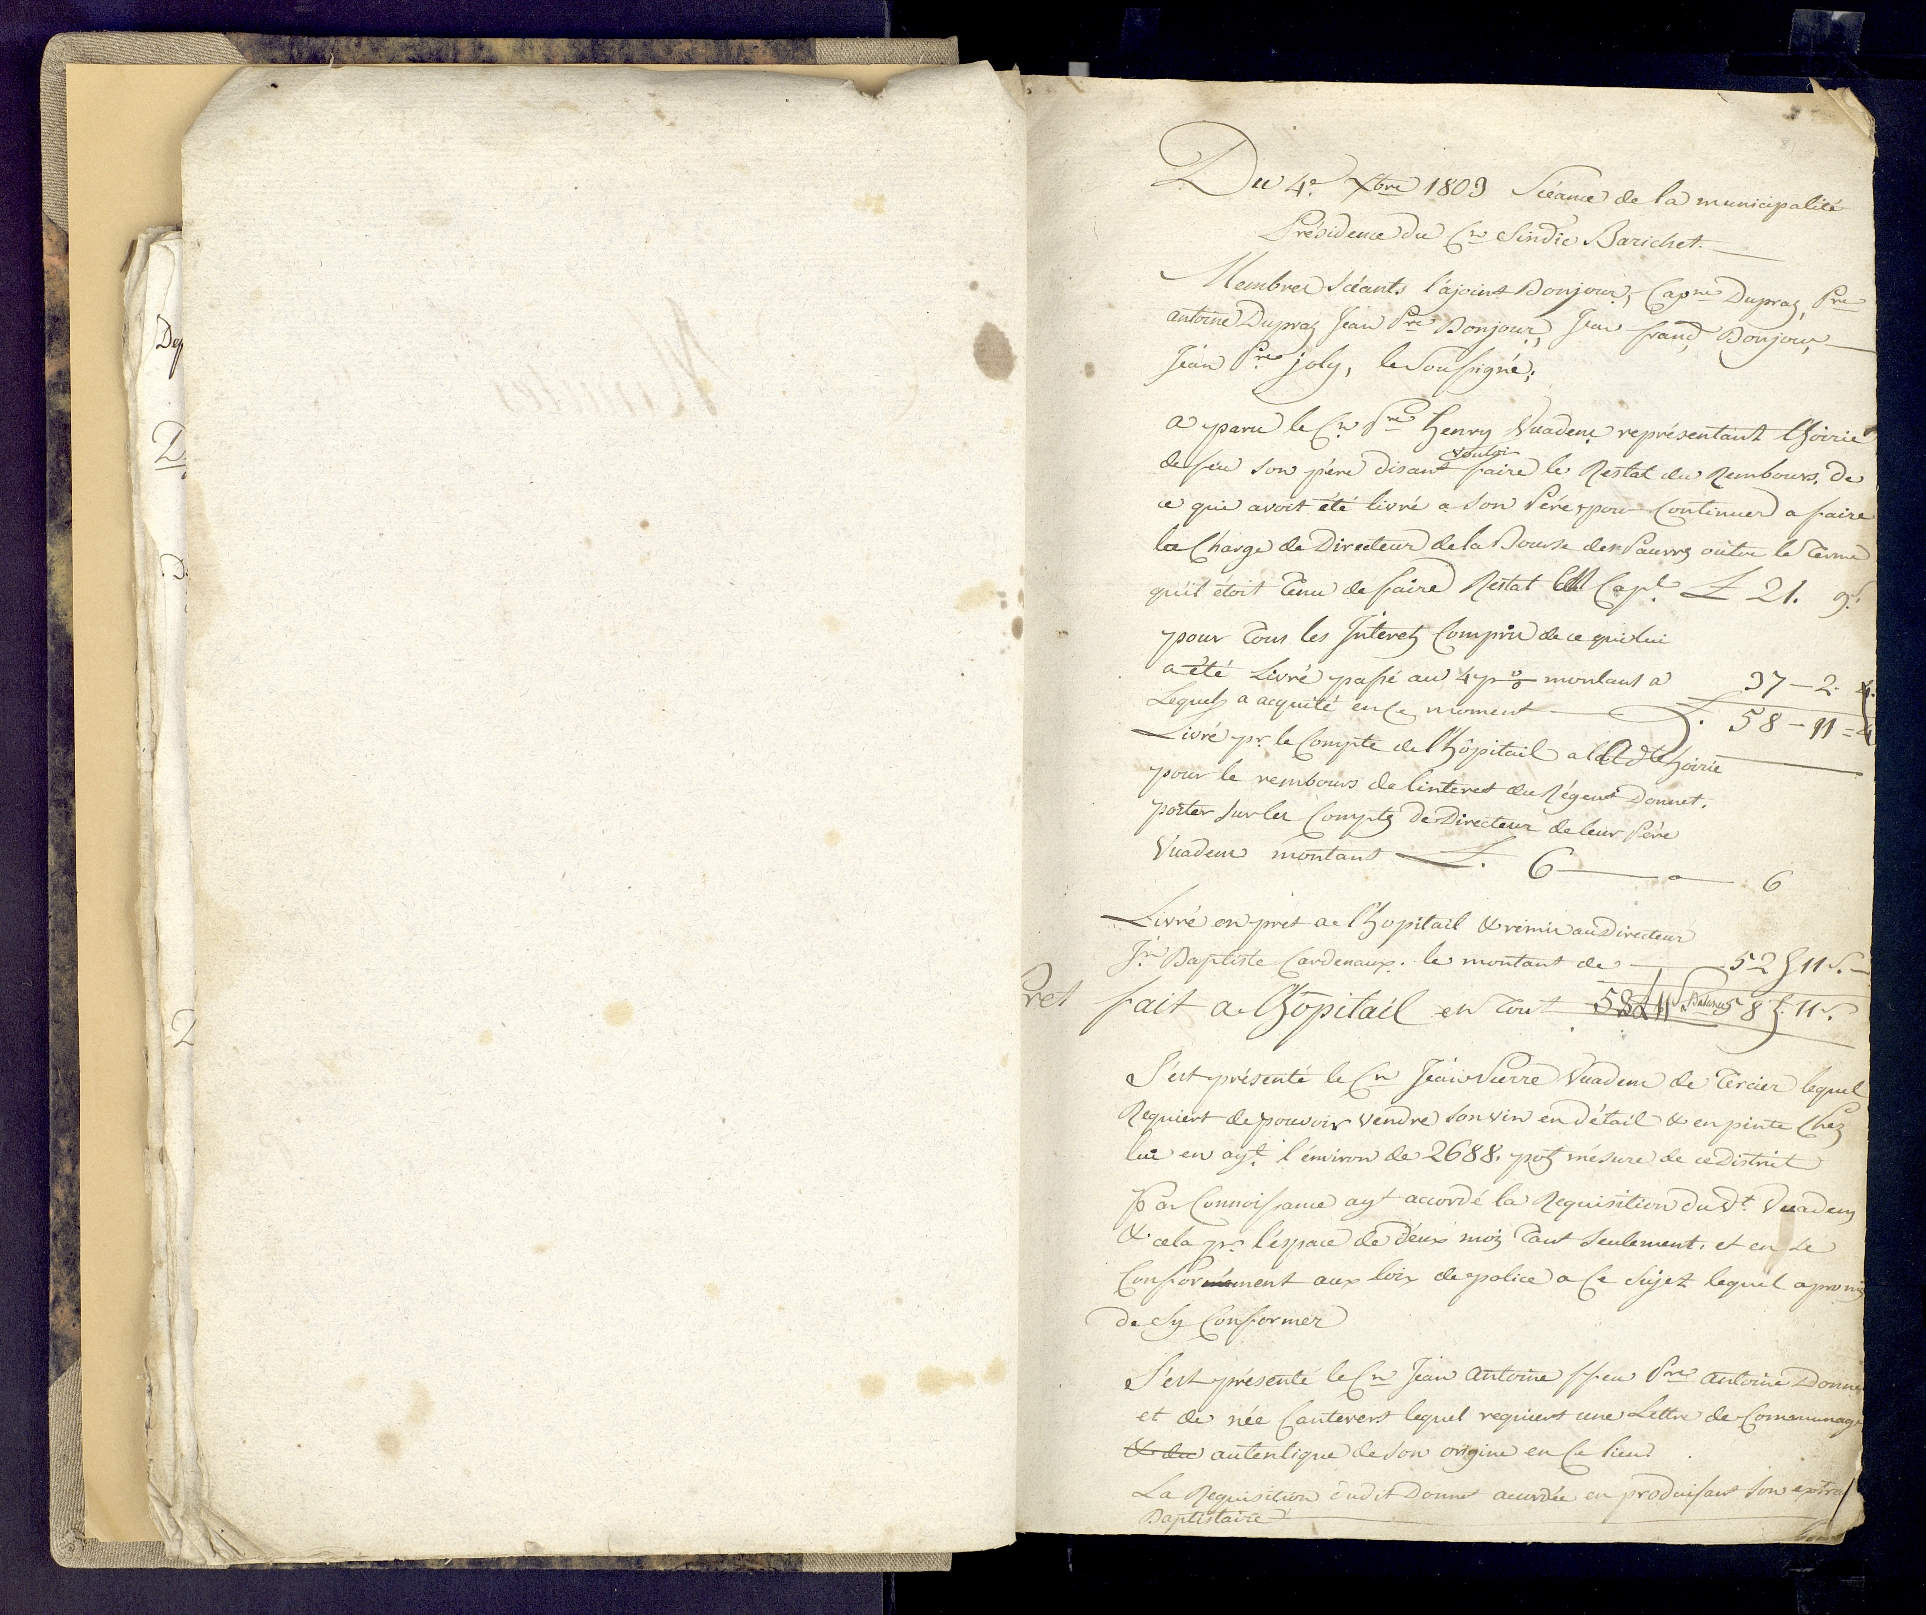 Du 4.e Xbre 1803 Scéance de la municipalité
Présidence du Cn Sindic Barichet.
Membres Scéants l'ajoint Bonjour, Capne Dupraz, Pre
antoine Dupraz Jean Pre Bonjour, Jean franc̜ Bonjour,
Jean Pre joly, le Soussigné;
a paru le Cn Pre henry Vuadens représentant lhoirie
de feu son père disant vouloir faire le Restat du Rembours. de
ce que avoit été livré a son Père pour Continuer a faire
la Charge de Directeur de la Bourse des Pauvres outre le Terme
qu'il étoit Tenu de faire Restat Capl. L 21. 9 s.
pour tous les Interetz Compris de ce que lui
a été Livré passé au 4 p % montant a 37 - 2. 4.
Lequel a acquité en ce moment L. 58 - 11 = 4
Livré pr. le Compte de l'hôpitail a la d.te hoirie
pour le rembours de linteret du Régent Donnet.
porter sur les Comptes de Directeur de leur Père
Vuadens montant L. 6 6
Livré en pret a l'hopitail & remis au Directeur
Jn Baptiste Cardenaux. le montant de 52 L 11 s.
Pret fait a lhopitail en tout 58 L 11 s 58 L. 11 s.
S'est présenté le Cn Jean Pierre Vuadens de Tercier lequel
Requiert de pouvoir vendre son vin en détail & en pinte Chez
lui en ayt. l'émiron de 2688. potz mésure de ce District
Par Connoissance ayt accordé la Requisition du dt. Vuadens
& cela pr. l'éspace de deux mois Tant Seulement. et en se
Conformément aux loix de police a Ce Sujet lequel a promis
de sy Conformer
S'est présenté le Cn Jean antoine ffeu Pre antoine Donnet
et de née Cantevers lequel requiert une Lettre de Communage
& du autentique de son origine en Ce lieu
La Requisition dudit Donnet acordée en produisant son extrait
Baptistaire